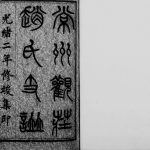 常州觀莊
趙氏支譜
光緒二年修竣集印